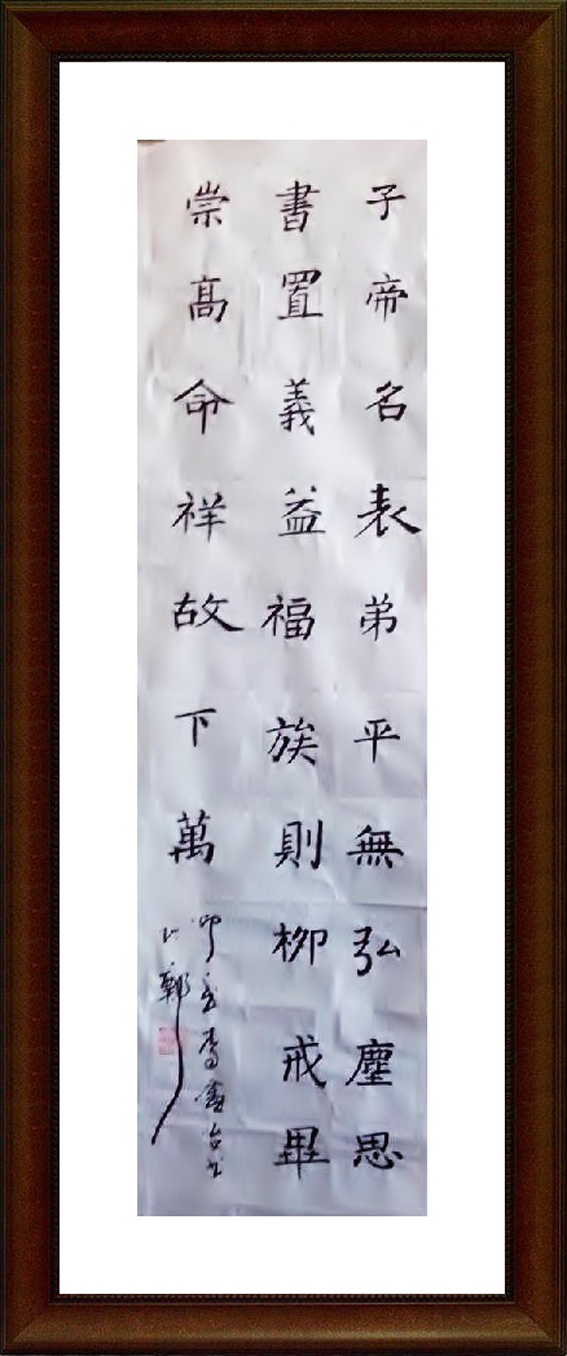 子帝名表弟平無弘塵思
書置義益福族則柳戒畢
崇高命祥故下萬